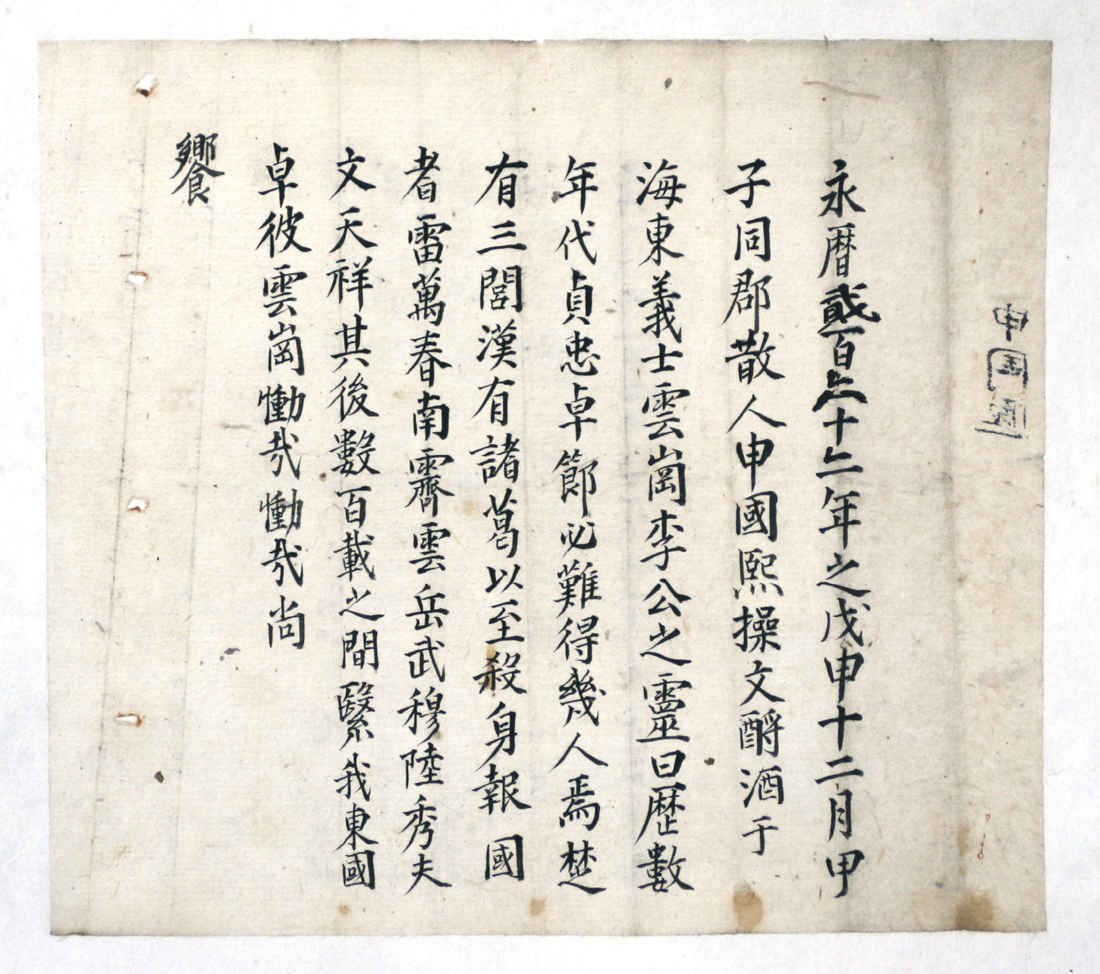 永曆貳百六十二年之戊申十二月甲
子同郡散人申國熙操文酹酒于
海東義士雲崗李公之靈曰歷數
年代貞忠卓節必難得幾人焉楚
有三閭漢有諸葛以至殺身報 國
者雷萬春南霽雲岳武穆陸秀夫
文天祥其後數百載之間繄我東國
卓彼雲崗慟哉慟哉尙
饗